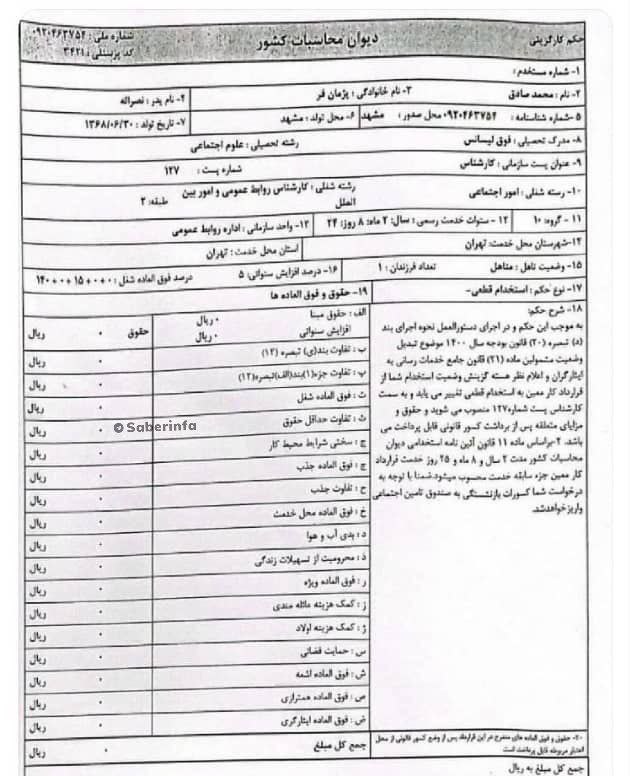 حکم کارگزینی
دیوان محاسبات کشور
شماره ملی : ۰۹۲۰۴۶۳۷۵۴
کد پرسنلی : ۳۴۲۱
۱- شماره مستخدم :
۲- نام : محمد صادق
۳- نام خانوادگی : پژمان فر
۴- نام پدر : نصراله
۵ -شماره شناسنامه : ۰۹۲۰۴۶۳۷۵۴
محل صدور : مشهد
۶- محل تولد : مشهد
۷- تاریخ تولد : ۱۳۶۸/۰۶/۳۰
۸- مدرک تحصیلی : فوق لیسانس
رشته تحصیلی : علوم اجتماعی
۹- عنوان پست سازمانی : کارشناس
شماره پست : ۱۲۷
۱۰- رسته شغلی : امور اجتماعی
رشته شغلی : کارشناس روابط عمومی و امور بین
الملل
طبقه: ۲
۱۱ - گروه: ۱۰
۱۲ - سنوات خدمت رسمی : سال: ۲ ماه: ۸ روز: ۲۴
۱۳- واحد سازمانی : اداره روابط عمومی
۱۴-شهرستان محل خدمت: تهران
استان محل خدمت : تهران
۱۵- وضعیت تاهل : متاهل
تعداد فرزندان : ۱
۱۶- درصد افزایش سنواتی: ۵
درصد فوق العاده شغل : ۰+۰+۱۵+۰+۱۴۰
۱۷- نوع حکم : استخدام قطعی-
۱۸- شرح حکم:
به موجب این حکم و در اجرای دستورالعمل نحوه اجرای بند
(د) تبصره (۲۰) قانون بودجه سال ۱۴۰۰ موضوع تبدیل
وضعیت مشمولین ماده (۲۱) قانون جامع خدمات رسانی به
ایثارگران و اعلام نظر هسته گزینش وضعیت استخدام شما از
قرارداد کار معین به استخدام قطعی تغییر می یابد و به سمت
کارشناس پست شماره۱۲۷ منصوب می شوید و حقوق و
مزایای متعلقه پس از برداشت کسور قانونی قابل پرداخت می
باشد. ۲-براساس ماده ۱۱ قانون آئین نامه استخدامی دیوان
محاسبات کشور مدت ۲ سال و ۸ ماه و ۲۵ روز خدمت قرارداد
کار معین جزء سابقه خدمت محسوب میشود.ضمنا با توجه به
درخواست شما کسورات بازنشستگی به صندوق تامین اجتماعی
واریز خواهدشد.
۱۹- حقوق و فوق العاده ها
الف : حقوق مبنا ۰ ریال
افزایش سنواتی ۰ ریال
حقوق ۰ ریال
ب : تفاوت بند(ی) تبصره (۱۲) ۰ ریال
پ : تفاوت جزء(۱)بند(الف)تبصره(۱۲) ۰ ریال
ت : فوق العاده شغل ۰ ریال
ث : تفاوت حداقل حقوق ۰ ریال
ج : سختی شرایط محیط کار ۰ ریال
چ : فوق العاده جذب ۰ ریال
ح : تفاوت جذب ۰ ریال
خ : فوق العاده محل خدمت ۰ ریال
د : بدی آب و هوا ۰ ریال
ذ : محرومیت از تسهیلات زندگی ۰ ریال
ر : فوق العاده ویژه ۰ ریال
ز : کمک هزینه عائله مندی ۰ ریال
ژ : کمک هزینه اولاد ۰ ریال
س : حمایت قضائی ۰ ریال
ش : فوق العاده اشعه ۰ ریال
ص : فوق العاده همترازی ۰ ریال
ض : فوق العاده ایثارگری ۰ ریال
جمع کل مبلغ ۰ ریال
۲۰- حقوق و فوق العاده های مندرج در این قرارداد پس از وضع کسور قانونی از محل
اعتبار مربوطه قابل پرداخت است
جمع کل مبلغ به ریال
© Saberinfa